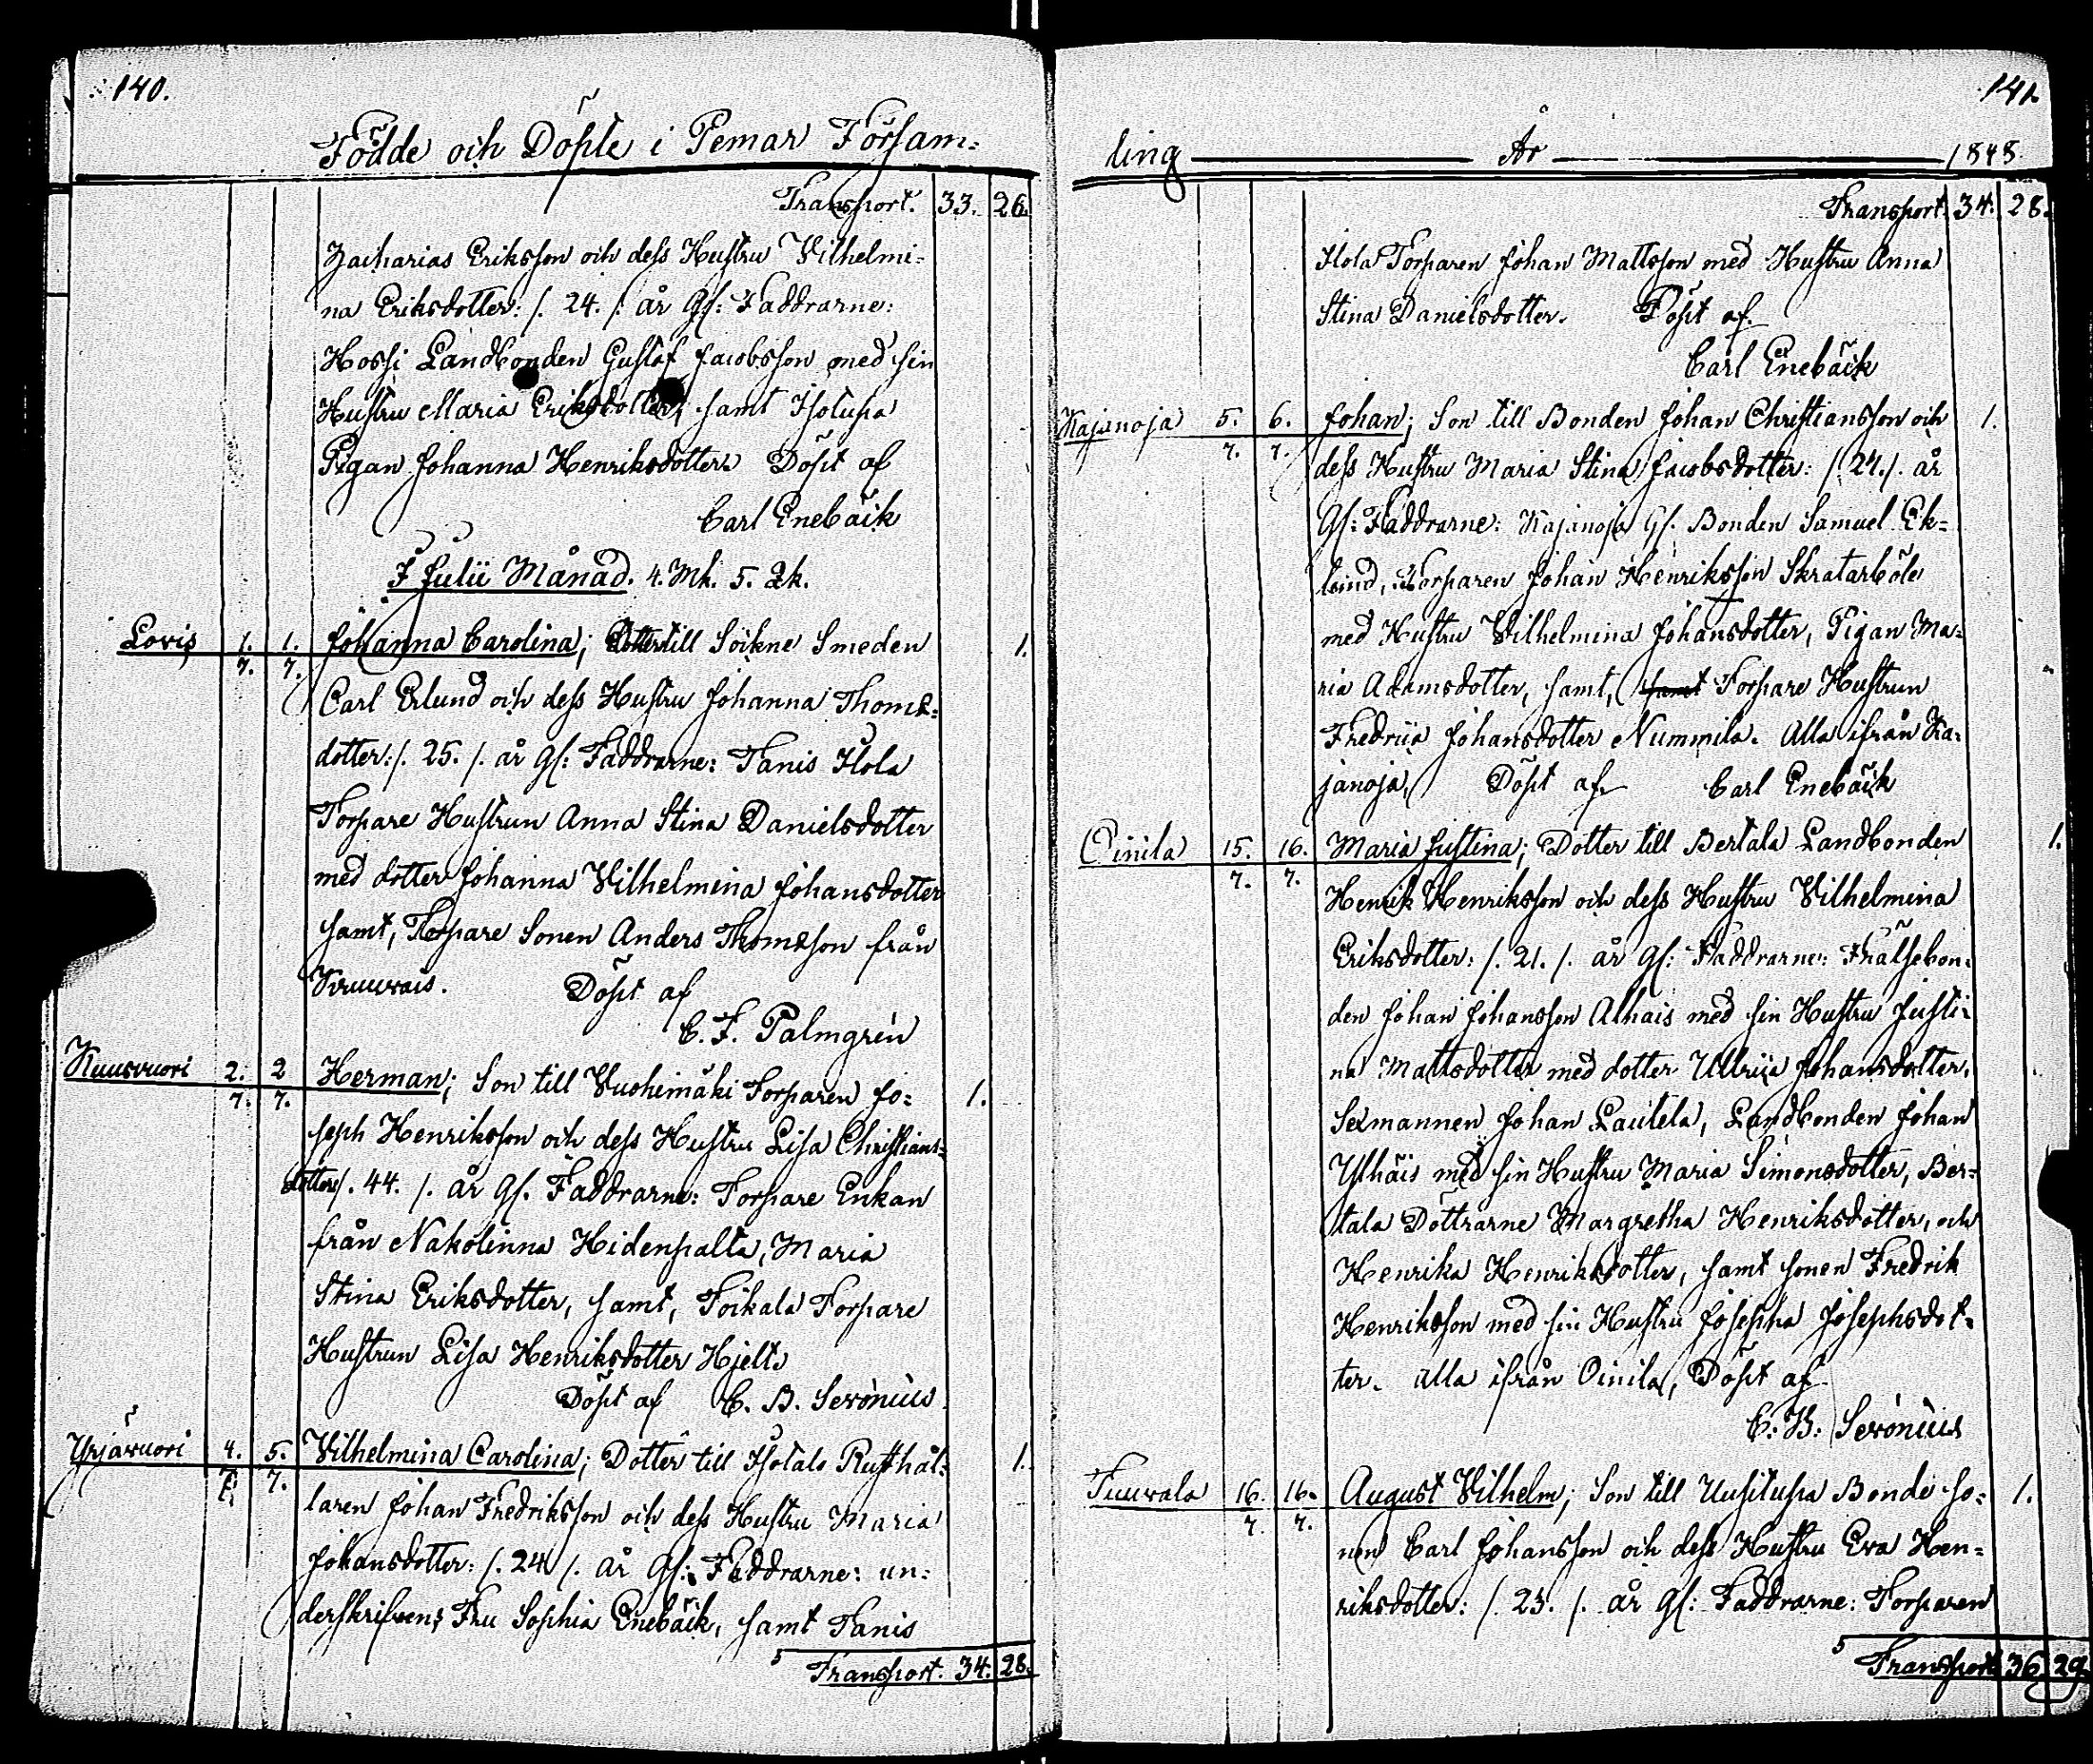 140.
Födde och Döpte i Pemar Församˍ
Transport. 33. 26.
Zacharias Eriksson och dess Hustru Vilhelmi=
na Eriksdotter: /. 24. /. år Gl: Faddrarne:
Hossi Landbonden Gustaf Jacobsson med sin
Hustru Maria Eriksdotter, samt Isotupa
Pigan Johanna Henriksdotter. Döpt af
Carl Enebäck
I Julii Månad. 4. Mk. 5. Qk.
Lovis 1. 1. Johanna Carolina; Dotter till Sockne Smeden 1.
7. 7.
Carl Erlund och dess Hustru Johanna Thomæ=
dotter: /. 25. /. år Gl: Faddrarne: Tanis Ilola
Torpare Hustrun Anna Stina Danielsdotter
med dotter Johanna Vilhelmina Johansdotter
samt, Torpare Sonen Anders Thomæson från
Döpt af
C. F. Palmgrén
Kuusvuori 2. 2 Herman; Son till Vuohimäki Torparen Jo= 1.
7. 7.
seph Henriksson och dess Hustru Lisa Christians=
dotter /. 44. /. år Gl. Faddrarne: Torpare Enkan
från Nakolinna Hidenpalta, Maria
Stina Eriksdotter, samt, Toikala Torpare
Hustrun Lisa Henriksdotter Hjelt.
Döpt af C. B. Serónius
Yrjävuori 4. 5. Vilhelmina Carolina; Dotter till Isotalo Rusthål= 1.
7. 7.
laren Johan Fredriksson och dess Hustru Maria
Johansdotter: /. 24 /. år Gl: Faddrarne: un=
derskrifvens Fru Sophia Enebäck, samt Tanis
Transport. 34. 28.
141.
ling År 1848.
Transport. 34. 28.
Ilola Torparen Johan Mattsson med Hustru Anna
Stina Danielsdotter. Döpt af
Carl Enebäck
Kajanoja 5. 6. Johan; Son till Bonden Johan Christiansson och 1.
7. 7.
dess Hustru Maria Stina Jacobsdotter: /. 24. /. år
Gl: Faddrarne: Kajanoja Gl. Bonden Samuel Ek=
lund, Torparen Johan Henriksson Skratarböle
med Hustru Vilhelmina Johansdotter, Pigan Ma=
ria Adamsdotter, samt, samt Torpare Hustrun
Fredrica Johansdotter Nummila. Alla ifrån Ka=
janoja, Döpt af Carl Enebäck
Oinila 15. 16. Maria Justina; Dotter till Bertala Landbonden 1.
7. 7.
Henrik Henriksson och dess Hustru Vilhelmina
Eriksdotter: /. 21. /. år Gl: Faddrarne: Frälsebon=
den Johan Johansson Alhais med sin Hustru Justi=
na Mattsdotter med dotter Ullrica Johansdotter.
Sexmannen Johan Lautela, Landbonden Johan
Ylhäis med sin Hustru Maria Simonsdotter, Ber=
tala Döttrarne Margretha Henriksdotter, och
Henrika Henriksdotter, samt sonen Fredrik
Henriksson med sin Hustru Josepha Josephsdot=
ter. alla ifrån Oinila, Döpt af
C. B. Serónius
Tuuvala 16. 16. August Vilhelm; Son till Uusitupa Bonde So= 1.
7. 7.
nen Carl Johansson och dess Hustru Eva Hen=
riksdotter: /. 23. /. år Gl: Faddrarne: Torparen
Transport 36 29.